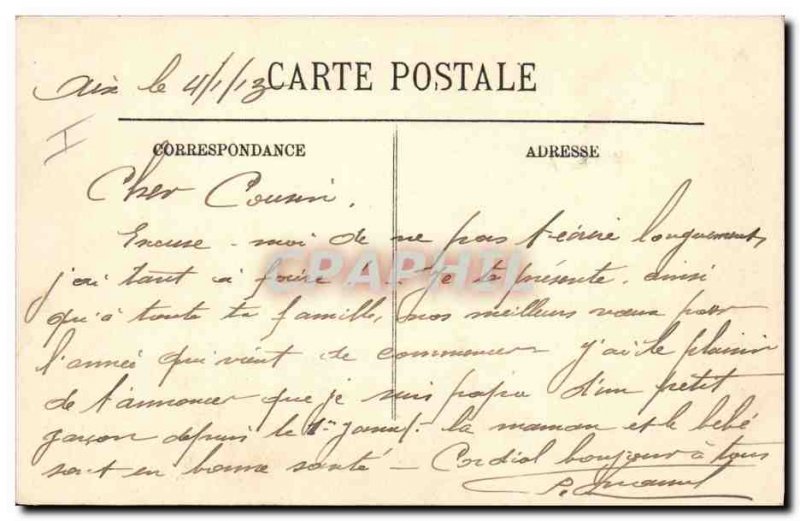 Aix le 4/1/13 CARTE POSTALE
I
CORRESPONDANCE ADRESSE
Cher Cousin,
Excuse-moi de ne pas t'écrire longuement,
j'ai tant à faire ! - Je te présente, ainsi
qu'à toute ta famille, nos meilleurs vœux pour
l'année qui vient de commencer. J'ai le plaisir
de t'annoncer que je suis papa d'un petit
garçon depuis le 1er Janv. - la maman et le bébé
sont en bonne santé - Cordial bonjour à tous
CPAPHIL